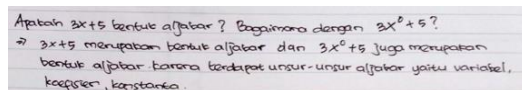 Apakah 3x+5 bentuk aljabar? Bagaimana dengan 3x⁰+5?
⇒ 3x+5 merupakan bentuk aljabar dan 3x⁰+5 juga merupakan
bentuk aljabar karena terdapat unsur-unsur aljabar yaitu variabel,
koefisien, konstanta.